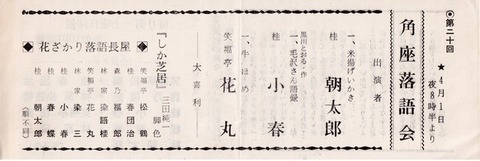 ◉第二十回
角座落語会
★4月1日
夜8時半より
出演者
一、米揚げいかき
桂 朝太郎
黒川とおる・作
一、毛沢さん語録
桂 小春
一、牛ほめ
笑福亭 花丸
―大喜利―
『しか芝居』三田純一 脚色
笑福亭 松鶴
桂 春団治
森乃 福郎
林家 染語楼
笑福亭 花丸
林家 染三
桂 小春
桂 春蝶
桂 朝太郎
(順不同)
◆花ざかり落語長屋◆